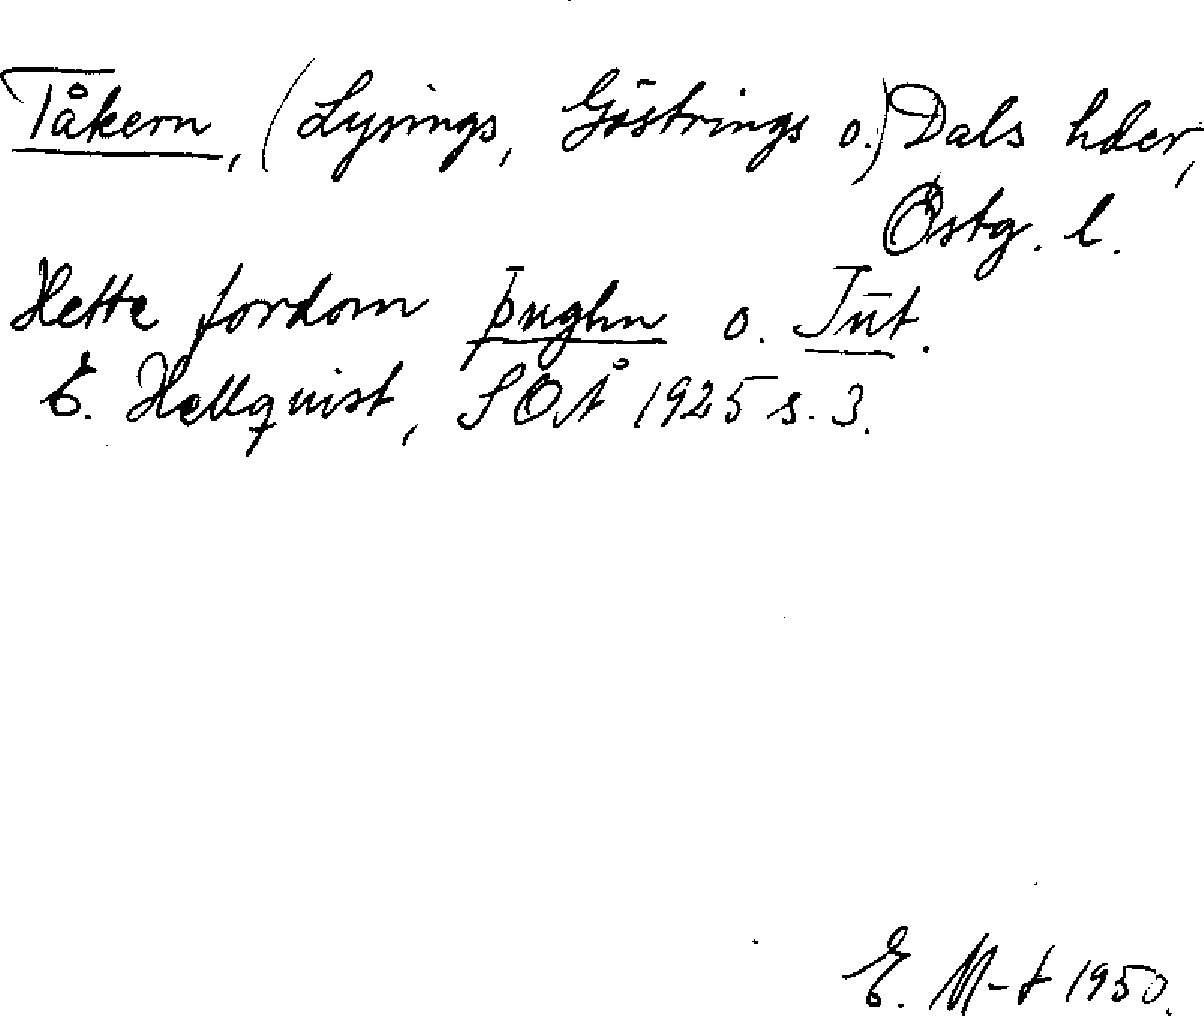 Tåkern, (Lysings, Göstrings o.) Dals hder,
Östg. l.
Hette fordom þughn o. Tūt.
E. Hellquist, SOÅ 1925 s. 3.
E. M-t 1950.